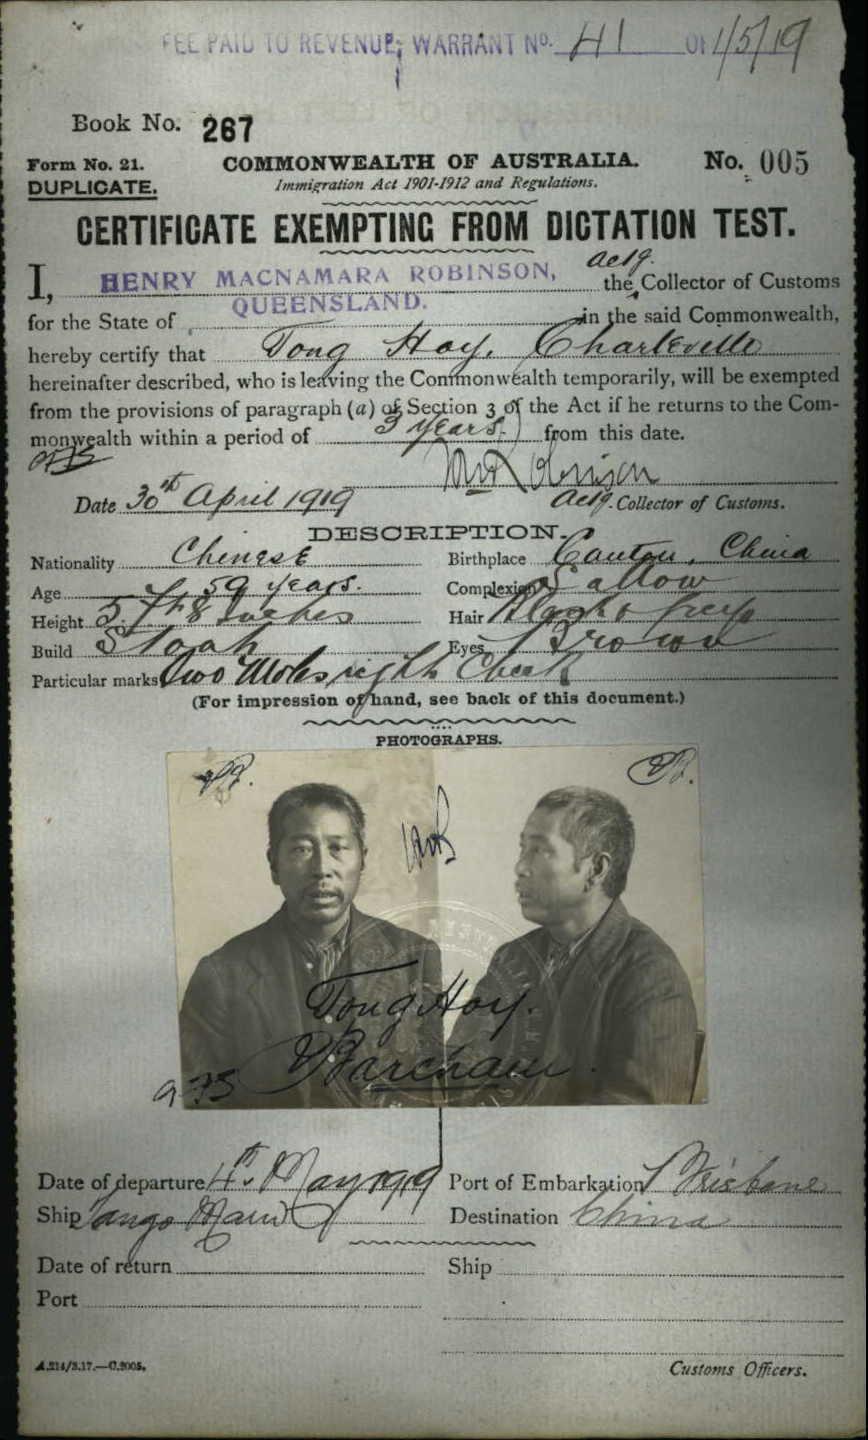 FEE PAID TO REVENUE; WARRANT No. 41 OF 1/5/19
Book No. 267
Form No. 21. COMMONWEALTH OF AUSTRALIA. No. 005
DUPLICATE. Immigration Act 1901-1912 and Regulations.
CERTIFICATE EXEMPTING FROM DICTATION TEST.
I, HENRY MACNAMARA ROBINSON, the Actg. Collector of Customs
for the State of QUEENSLAND. in the said Commonwealth,
hereby certify that Tong Hoy, Charleville
hereinafter described, who is leaving the Commonwealth temporarily, will be exempted
from the provisions of paragraph (a) of Section 3 of the Act if he returns to the Com-
monwealth within a period of 3 years. from this date.
Date 30th April 1919 Actg. Collector of Customs.
DESCRIPTION.
Nationality Chinese Birthplace Canton, China
Age 59 years. Complexion Sallow
Height 5 ft 8 Inches Hair
Build Eyes Brown
Particular marks Two Moles right Cheek
(For impression of hand, see back of this document.)
PHOTOGRAPHS.
Tong Hoy.
Date of departure 4th May 1919 Port of Embarkation Brisbane
Ship Tango Maru Destination China
Date of return Ship
Port
A.214/3.17.—C.2005. Customs Officers.